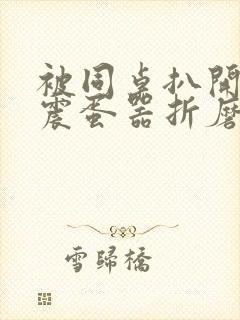 被同桌扒開
震蛋器折磨
雪歸橋